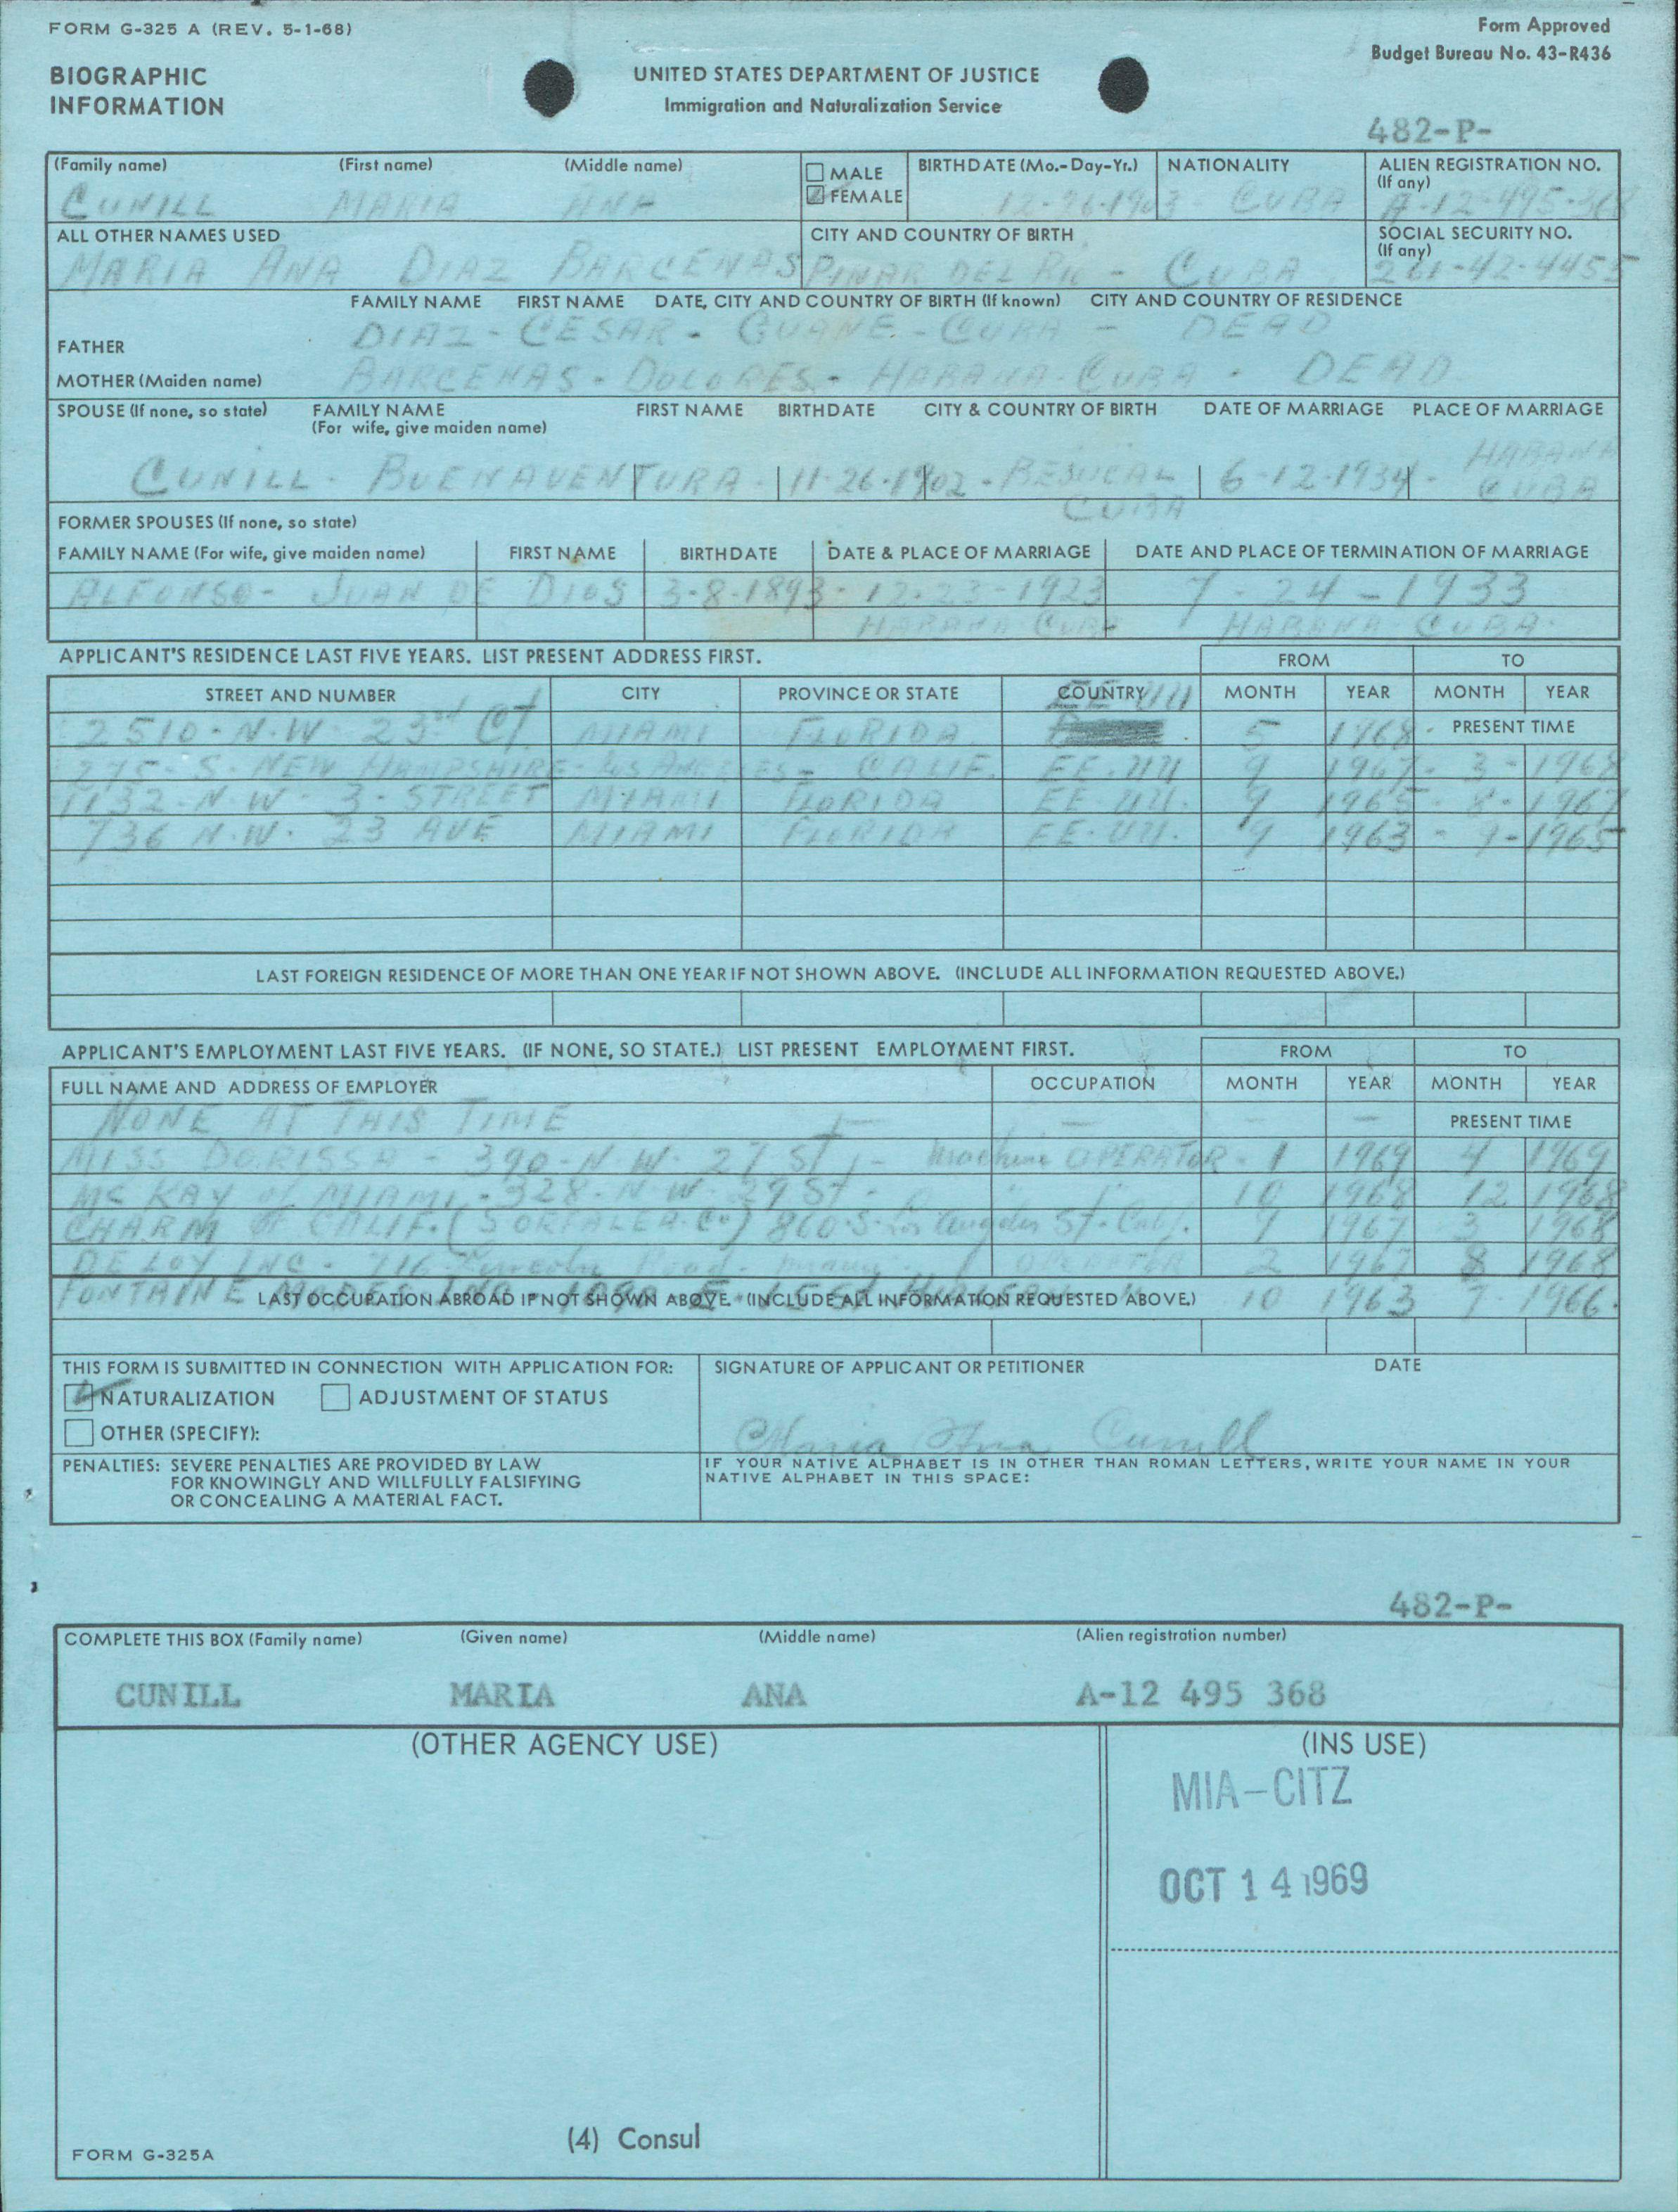 FORM G-325 A (REV. 5-1-68)
Form Approved
Budget Bureau No. 43-R436
BIOGRAPHIC
INFORMATION
UNITED STATES DEPARTMENT OF JUSTICE
Immigration and Naturalization Service
482-P-
(Family name) (First name) (Middle name) MALE FEMALE BIRTHDATE (Mo.-Day-Yr.) NATIONALITY ALIEN REGISTRATION NO. (If any)
CUNILL MARIA ANA 12-26-1903 - CUBA A-12-495-368
ALL OTHER NAMES USED CITY AND COUNTRY OF BIRTH SOCIAL SECURITY NO. (If any)
MARIA ANA DIAZ BARCENAS PINAR DEL RIO - CUBA 261-42-4455
FAMILY NAME FIRST NAME DATE, CITY AND COUNTRY OF BIRTH (If known) CITY AND COUNTRY OF RESIDENCE
FATHER DIAZ - CESAR - GUANE - CUBA - DEAD
MOTHER (Maiden name) BARCENAS - DOLORES - HABANA - CUBA - DEAD
SPOUSE (If none, so state) FAMILY NAME (For wife, give maiden name) FIRST NAME BIRTHDATE CITY & COUNTRY OF BIRTH DATE OF MARRIAGE PLACE OF MARRIAGE
CUNILL - BUENAVENTURA - 11-26-1902 - BEJUCAL CUBA 6-12-1934 - HABANA CUBA
FORMER SPOUSES (If none, so state)
FAMILY NAME (For wife, give maiden name) FIRST NAME BIRTHDATE DATE & PLACE OF MARRIAGE DATE AND PLACE OF TERMINATION OF MARRIAGE
ALFONSO - JUAN DE DIOS 3-8-1893 - 12-23-1923 7-24-1933
HABANA CUBA HABANA CUBA
APPLICANT'S RESIDENCE LAST FIVE YEARS. LIST PRESENT ADDRESS FIRST. FROM TO
STREET AND NUMBER CITY PROVINCE OR STATE COUNTRY MONTH YEAR MONTH YEAR
2510-N.W. 23rd CT MIAMI FLORIDA EE UU 5 1968 - PRESENT TIME
275-S-NEW HAMPSHIRE - LOS ANGELES - CALIF. EE-UU 9 1967 - 3 - 1968
1132-N-W-3-STREET MIAMI FLORIDA EE-UU. 9 1965 - 8 - 1967
736 N.W. 23 AVE MIAMI FLORIDA EE-UU. 9 1963 - 9 - 1965
LAST FOREIGN RESIDENCE OF MORE THAN ONE YEAR IF NOT SHOWN ABOVE. (INCLUDE ALL INFORMATION REQUESTED ABOVE.)
APPLICANT'S EMPLOYMENT LAST FIVE YEARS. (IF NONE, SO STATE.) LIST PRESENT EMPLOYMENT FIRST. FROM TO
FULL NAME AND ADDRESS OF EMPLOYER OCCUPATION MONTH YEAR MONTH YEAR
NONE AT THIS TIME — — — — PRESENT TIME
MISS DORISSA - 390-N-W-27 ST - machine OPERATOR - 1 1969 4 1969
MC KAY of MIAMI - 328-N-W-29 St - " " 10 1968 12 1968
CHARM OF CALIF. 860-S-Los Angeles St-Calf. 9 1967 3 1968
DE LOY INC - 716 Lincoln Road - OPERATOR 2 1967 8 1968
FONTAINE 10 1963 7 - 1966.
LAST OCCUPATION ABROAD IF NOT SHOWN ABOVE. (INCLUDE ALL INFORMATION REQUESTED ABOVE.)
THIS FORM IS SUBMITTED IN CONNECTION WITH APPLICATION FOR: SIGNATURE OF APPLICANT OR PETITIONER DATE
NATURALIZATION ADJUSTMENT OF STATUS
OTHER (SPECIFY): Maria Ana Cunill
PENALTIES: SEVERE PENALTIES ARE PROVIDED BY LAW
FOR KNOWINGLY AND WILLFULLY FALSIFYING
OR CONCEALING A MATERIAL FACT.
IF YOUR NATIVE ALPHABET IS IN OTHER THAN ROMAN LETTERS, WRITE YOUR NAME IN YOUR
NATIVE ALPHABET IN THIS SPACE:
482-P-
COMPLETE THIS BOX (Family name) (Given name) (Middle name) (Alien registration number)
CUNILL MARIA ANA A-12 495 368
(OTHER AGENCY USE) (INS USE)
MIA-CITZ
OCT 14 1969
(4) Consul
FORM G-325A